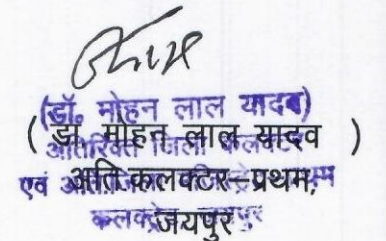 (डॉ. मोहन लाल यादव)
( डॉ मोहन लाल यादव )
अतिरिक्त जिला कलक्टर
एवं
अति.कलक्टर–प्रथम,
जयपुर